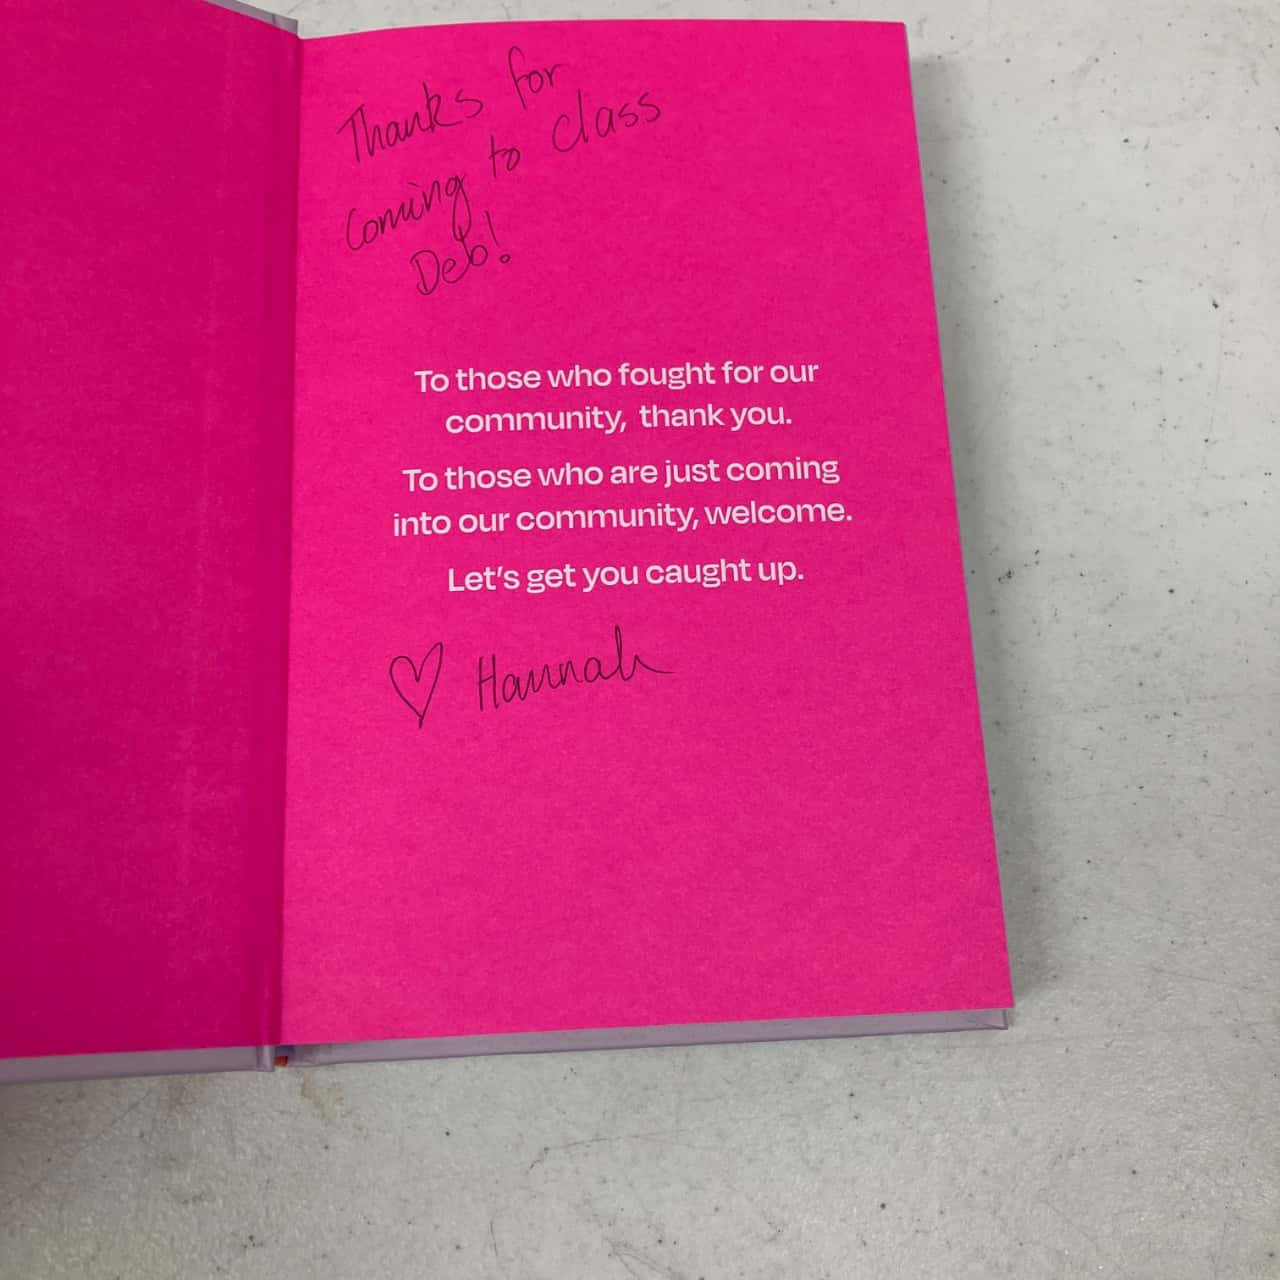 Thanks for
coming to class
Deb!
To those who fought for our
community, thank you.
To those who are just coming
into our community, welcome.
Let's get you caught up.
♡ Hannah